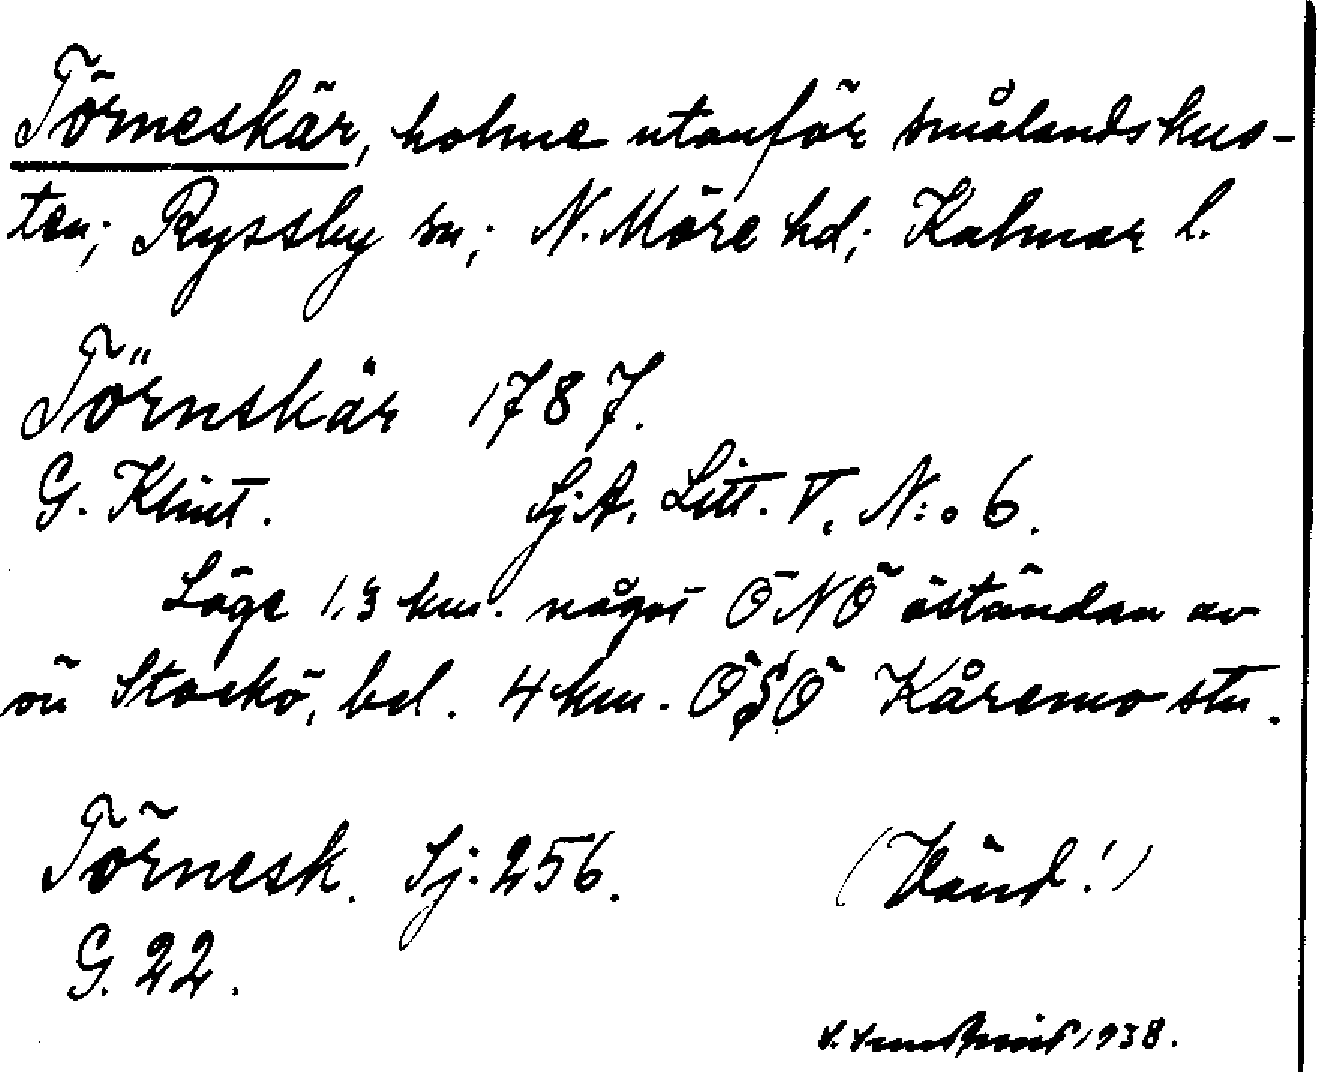 Törneskär, holme utanför smålandskus-
ten; Ryssby sn; N. Möre hd; Kalmar l.
Törnskär 1787.
G. Klint. Sj.A. Litt. V. N:o 6.
Läge 1,3 km. något ÖNÖ östandan av
ön Stockö, bel. 4 km. ÖSÖ Kåremo stn.
Törnesk. Sj: 256. (Vänd!)
G. 22.
1938.